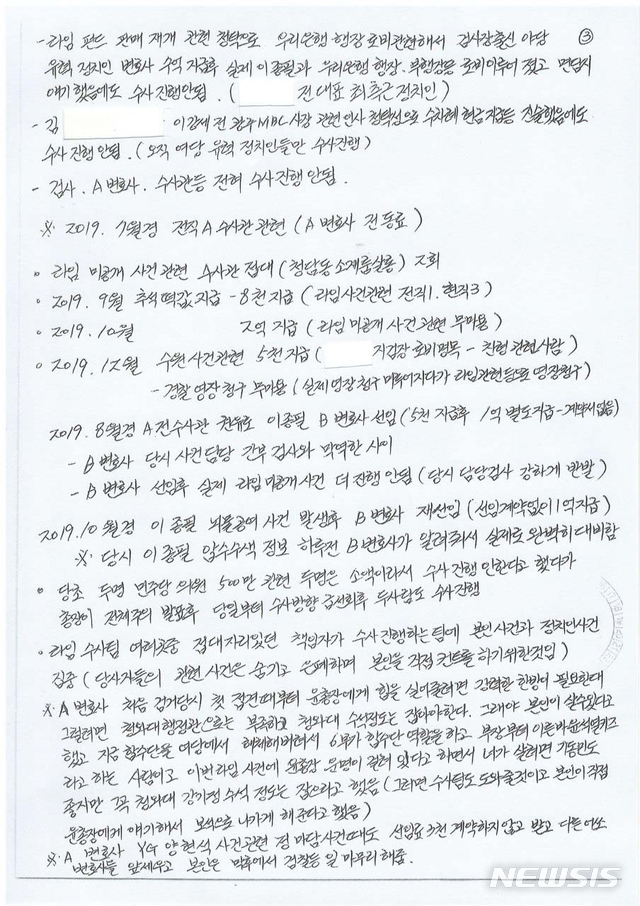 - 라임 펀드 판매 재개 관련 청탁으로 우리은행 행장 로비관련해서 검사장출신 야당 ③
유력 정치인 변호사 수억 지급후 실제 이종필과 우리은행 행장. 부행장등 로비이루어 졌고 면담시
얘기 했음에도 수사진행안됨. ( 전 대표 최측근 정치인 )
- 김 이강제 전 광주MBC사장 관련 인사 청탁성으로 수차례 현금 지급등 진술했음에도
수사 진행 안됨. ( 오직 여당 유력 정치인들만 수사진행 )
- 검사. A변호사. 수사관등 전혀 수사진행 안됨.
※ 2019. 7월경 전직 A수사관 관련 ( A변호사 전 동료 )
○ 라임 미공개 사건관련 수사관 접대 ( 청담동 소재룸살롱 ) 2회
○ 2019. 9월 추석떡값 지급 - 8천 지급 ( 라임사건관련 전직1. 현직3 )
○ 2019. 10월 2억 지급 ( 라임 미공개 사건 관련 무마용 )
○ 2019. 12월 수원사건관련 5천 지급 ( 지검장 로비명목 - 친형 관련사람 )
- 경찰 영장 청구 무마용 ( 실제영장청구 미루어지다가 라임관련등으로 영장청구 )
2019. 8월경 A전수사관 권유로 이종필 B변호사 선임 ( 5천 지급후 1억 별도지급 - 계약서없음 )
- B변호사 당시 사건 담당 간부 검사와 막역한 사이
- B변호사 선임후 실제 라임 미공개사건 더 진행 안됨 ( 당시 담당검사 강하게 반발 )
2019. 10월경 이 종필 뇌물공여 사건 발생후 B변호사 재선임 ( 선임계약없이 1억지급 )
※ 당시 이종필 압수수색 정보 하루전 B변호사가 알려줘서 실제로 완벽히 대비함
○ 당초 두명 민주당 의원 500만 관련 두명은 소액이라서 수사진행 안한다고 했다가
총장이 전체주의 발표후 당일부터 수사방향 급선회후 두사람도 수사진행
○ 라임 수사팀 여러차례 접대자리있던 책임자가 수사 진행하는 팀에 본인사건과 정치인사건
집중 ( 당사자들의 관련 사건은 숨기고 은폐하며 본인을 직접 컨트롤 하기위한것임 )
※ A변호사 처음 검거당시 첫 접견때부터 윤총장에게 힘을 실어줄려면 강력한 한방이 필요한데
그럴려면 청와대 행정관으로는 부족하고 청와대 수석정도는 잡아야한다. 그래야 본인이 살수있다고
했고 지금 합수단을 여당에서 해체해버려서 6부가 합수단 역할을 하고 부장부터 이른바 윤석열키즈
라고 하는 사람이고 이번 라임 사건에 윤총장 운명이 걸려 있다고 하면서 너가 살려면 기동민도
좋지만 꼭 청와대 강기정 수석 정도는 잡으라고 했음 ( 그러면 수사팀도 도와줄것이고 본인이 직접
윤총장에게 얘기해서 보석으로 나가게 해준다고 했음 )
※. A 변호사 YG 양현석 사건관련 정 마담사건때도 선임료 3천 계약하지 않고 받고 다른 여성
변호사를 앞세우고 본인은 막후에서 검찰등 일 마무리 해줌.
NEWSIS